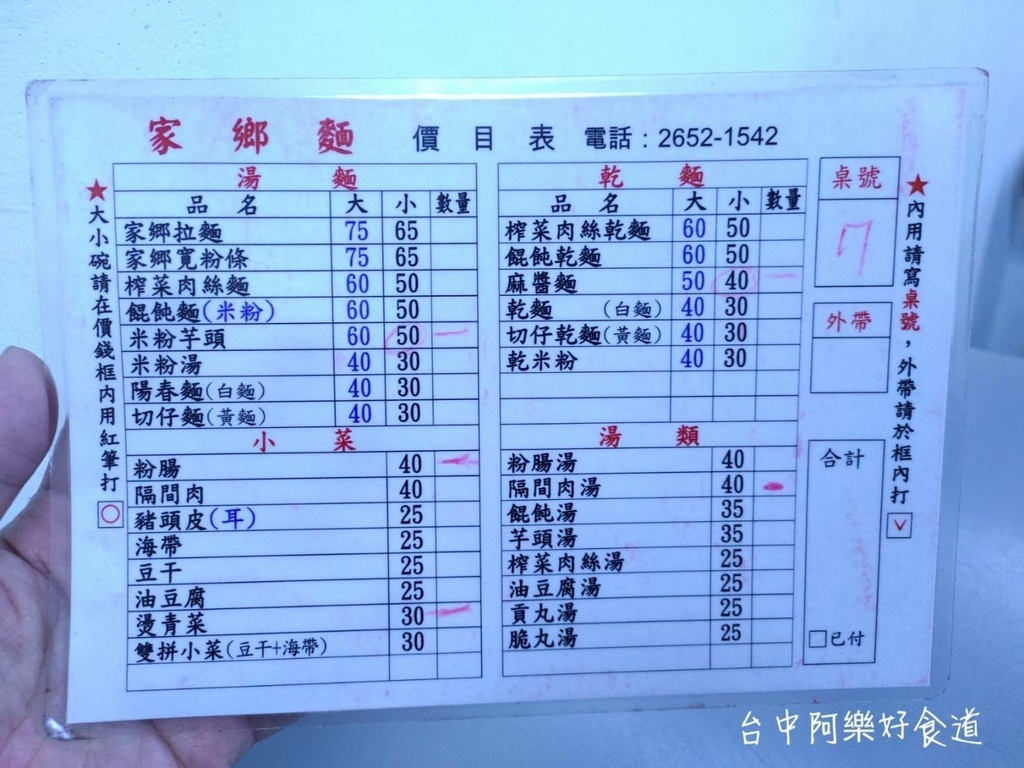 家鄉麵 價目表 電話：2652-1542
★大小碗請在價錢框內用紅筆打○
湯麵
品名 大 小 數量
家鄉拉麵 75 65
家鄉寬粉條 75 65
榨菜肉絲麵 60 50
餛飩麵(米粉) 60 50
米粉芋頭 60 50 一
米粉湯 40 30
陽春麵(白麵) 40 30
切仔麵(黃麵) 40 30
小菜
粉腸 40 一
隔間肉 40
豬頭皮(耳) 25
海帶 25
豆干 25
油豆腐 25
燙青菜 30 一
雙拼小菜(豆干+海帶) 30
乾麵
品名 大 小 數量
榨菜肉絲乾麵 60 50
餛飩乾麵 60 50
麻醬麵 50 40 一
乾麵 (白麵) 40 30
切仔乾麵(黃麵) 40 30
乾米粉 40 30
湯類
粉腸湯 40
隔間肉湯 40 一
餛飩湯 35
芋頭湯 35
榨菜肉絲湯 25
油豆腐湯 25
貢丸湯 25
脆丸湯 25
桌號
7
外帶
合計
□已付
★內用請寫桌號，外帶請於框內打✓
台中阿樂好食道